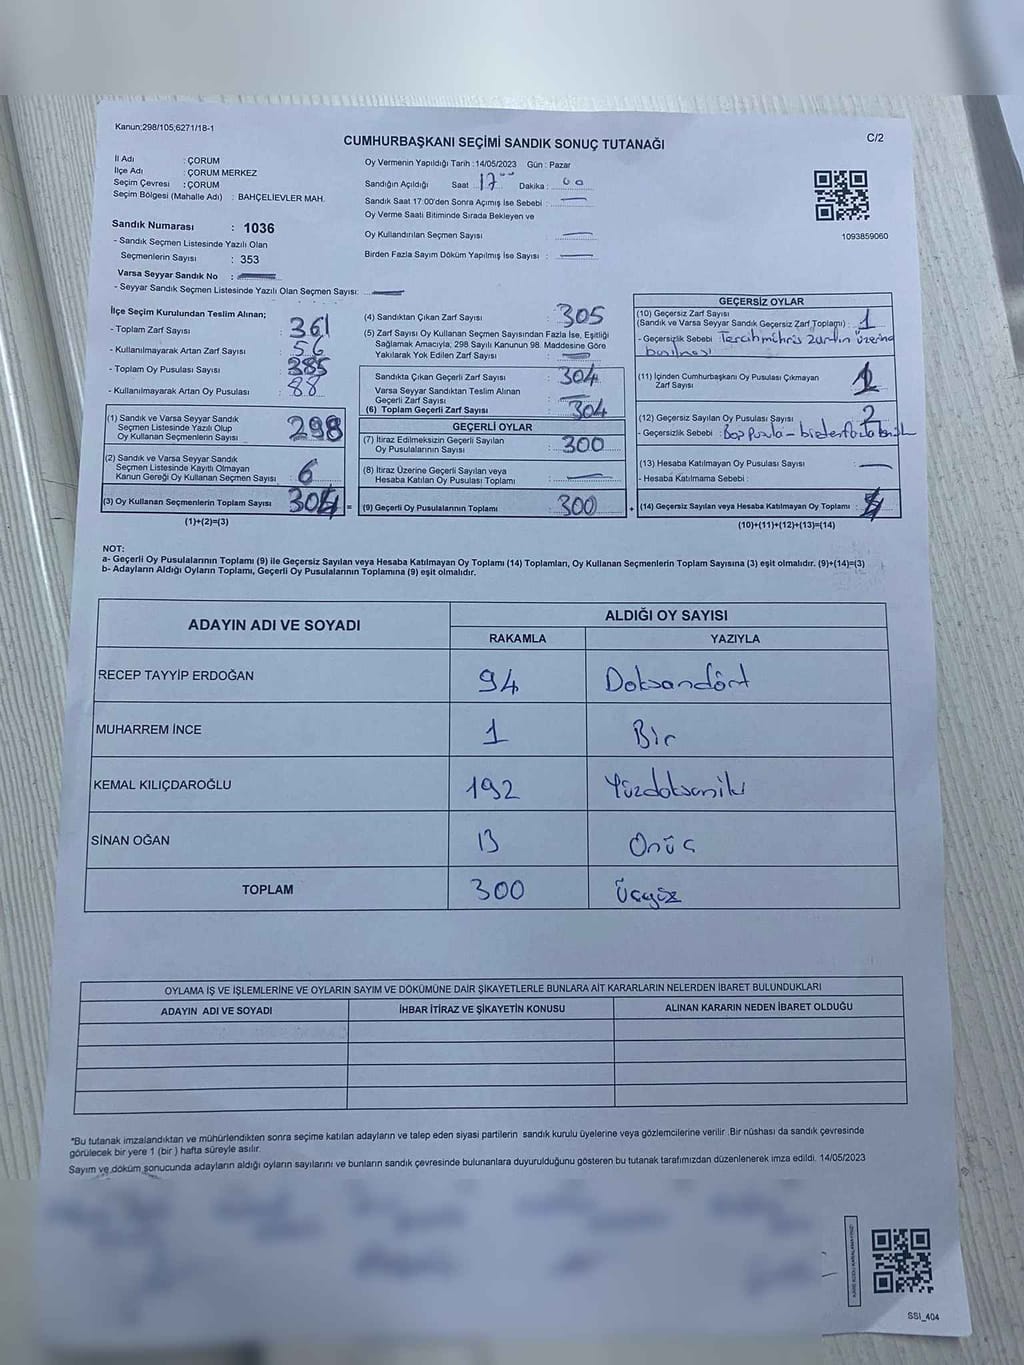 Kanun;298/105;6271/18-1
C/2
CUMHURBAŞKANI SEÇİMİ SANDIK SONUÇ TUTANAĞI
İl Adı : ÇORUM
İlçe Adı : ÇORUM MERKEZ
Seçim Çevresi : ÇORUM
Seçim Bölgesi (Mahalle Adı) : BAHÇELİEVLER MAH.
Sandık Numarası : 1036
- Sandık Seçmen Listesinde Yazılı Olan
Seçmenlerin Sayısı : 353
Varsa Seyyar Sandık No :
- Seyyar Sandık Seçmen Listesinde Yazılı Olan Seçmen Sayısı:
Oy Vermenin Yapıldığı Tarih :14/05/2023 Gün : Pazar
Sandığın Açıldığı Saat 17 00 Dakika : 00
Sandık Saat 17:00'den Sonra Açımış İse Sebebi :
Oy Verme Saati Bitiminde Sırada Bekleyen ve
Oy Kullandırılan Seçmen Sayısı
Birden Fazla Sayım Döküm Yapılmış İse Sayısı :
1093859060
İlçe Seçim Kurulundan Teslim Alınan;
- Toplam Zarf Sayısı : 361
- Kullanılmayarak Artan Zarf Sayısı : 56
- Toplam Oy Pusulası Sayısı : 385
- Kullanılmayarak Artan Oy Pusulası : 88
(1) Sandık ve Varsa Seyyar Sandık
Seçmen Listesinde Yazılı Olup
Oy Kullanan Seçmenlerin Sayısı : 298
(2) Sandık ve Varsa Seyyar Sandık
Seçmen Listesinde Kayıtlı Olmayan
Kanun Gereği Oy Kullanan Seçmen Sayısı : 6
(3) Oy Kullanan Seçmenlerin Toplam Sayısı : 304 =
(1)+(2)=(3)
(4) Sandıktan Çıkan Zarf Sayısı : 305
(5) Zarf Sayısı Oy Kullanan Seçmen Sayısından Fazla İse, Eşitliği
Sağlamak Amacıyla, 298 Sayılı Kanunun 98. Maddesine Göre
Yakılarak Yok Edilen Zarf Sayısı :
Sandıkta Çıkan Geçerli Zarf Sayısı : 304
Varsa Seyyar Sandıktan Teslim Alınan
Geçerli Zarf Sayısı :
(6) Toplam Geçerli Zarf Sayısı : 304
GEÇERLİ OYLAR
(7) İtiraz Edilmeksizin Geçerli Sayılan
Oy Pusulalarının Sayısı : 300
(8) İtiraz Üzerine Geçerli Sayılan veya
Hesaba Katılan Oy Pusulası Toplamı :
(9) Geçerli Oy Pusulalarının Toplamı : 300 +
GEÇERSİZ OYLAR
(10) Geçersiz Zarf Sayısı
(Sandık ve Varsa Seyyar Sandık Geçersiz Zarf Toplamı) : 1
- Geçersizlik Sebebi : Tercih mührü zarfın üzerine
basılması
(11) İçinden Cumhurbaşkanı Oy Pusulası Çıkmayan
Zarf Sayısı :
(12) Geçersiz Sayılan Oy Pusulası Sayısı : 2
- Geçersizlik Sebebi : Boş Pusula - birden fazla
(13) Hesaba Katılmayan Oy Pusulası Sayısı :
- Hesaba Katılmama Sebebi :
(14) Geçersiz Sayılan veya Hesaba Katılmayan Oy Toplamı :
(10)+(11)+(12)+(13)=(14)
NOT:
a- Geçerli Oy Pusulalarının Toplamı (9) ile Geçersiz Sayılan veya Hesaba Katılmayan Oy Toplamı (14) Toplamları, Oy Kullanan Seçmenlerin Toplam Sayısına (3) eşit olmalıdır. (9)+(14)=(3)
b- Adayların Aldığı Oyların Toplamı, Geçerli Oy Pusulalarının Toplamına (9) eşit olmalıdır.
ADAYIN ADI VE SOYADI
ALDIĞI OY SAYISI
RAKAMLA YAZIYLA
RECEP TAYYİP ERDOĞAN 94 Doksandört
MUHARREM İNCE 1 Bir
KEMAL KILIÇDAROĞLU 192 Yüzdoksaniki
SİNAN OĞAN 13 Onüç
TOPLAM 300 Üçyüz
OYLAMA İŞ VE İŞLEMLERİNE VE OYLARIN SAYIM VE DÖKÜMÜNE DAİR ŞİKAYETLERLE BUNLARA AİT KARARLARIN NELERDEN İBARET BULUNDUKLARI
ADAYIN ADI VE SOYADI İHBAR İTİRAZ VE ŞİKAYETİN KONUSU ALINAN KARARIN NEDEN İBARET OLDUĞU
*Bu tutanak imzalandıktan ve mühürlendikten sonra seçime katılan adayların ve talep eden siyasi partilerin sandık kurulu üyelerine veya gözlemcilerine verilir .Bir nüshası da sandık çevresinde
görülecek bir yere 1 (bir ) hafta süreyle asılır.
Sayım ve döküm sonucunda adayların aldığı oyların sayılarını ve bunların sandık çevresinde bulunanlara duyurulduğunu gösteren bu tutanak tarafımızdan düzenlenerek imza edildi. 14/05/2023
SSI_404